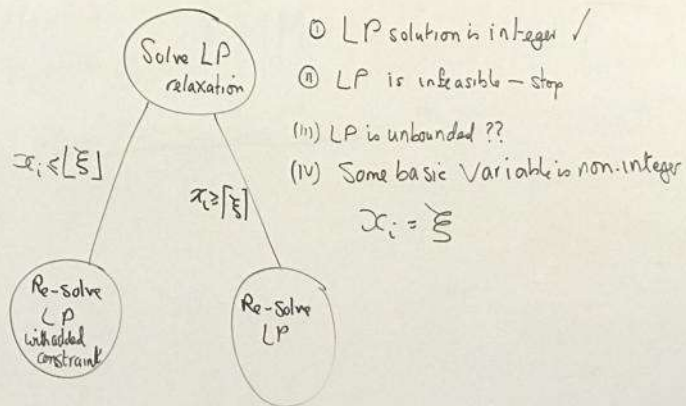 Solve LP
relaxation
① LP solution is integer ✓
② LP is infeasible – stop
(III) LP is unbounded ??
(IV) Some basic Variable is non-integer
xᵢ = ξ
xᵢ ≤ ⌊ξ⌋
xᵢ ≥ ⌈ξ⌉
Re-solve
LP
with added
constraint
Re-solve
LP